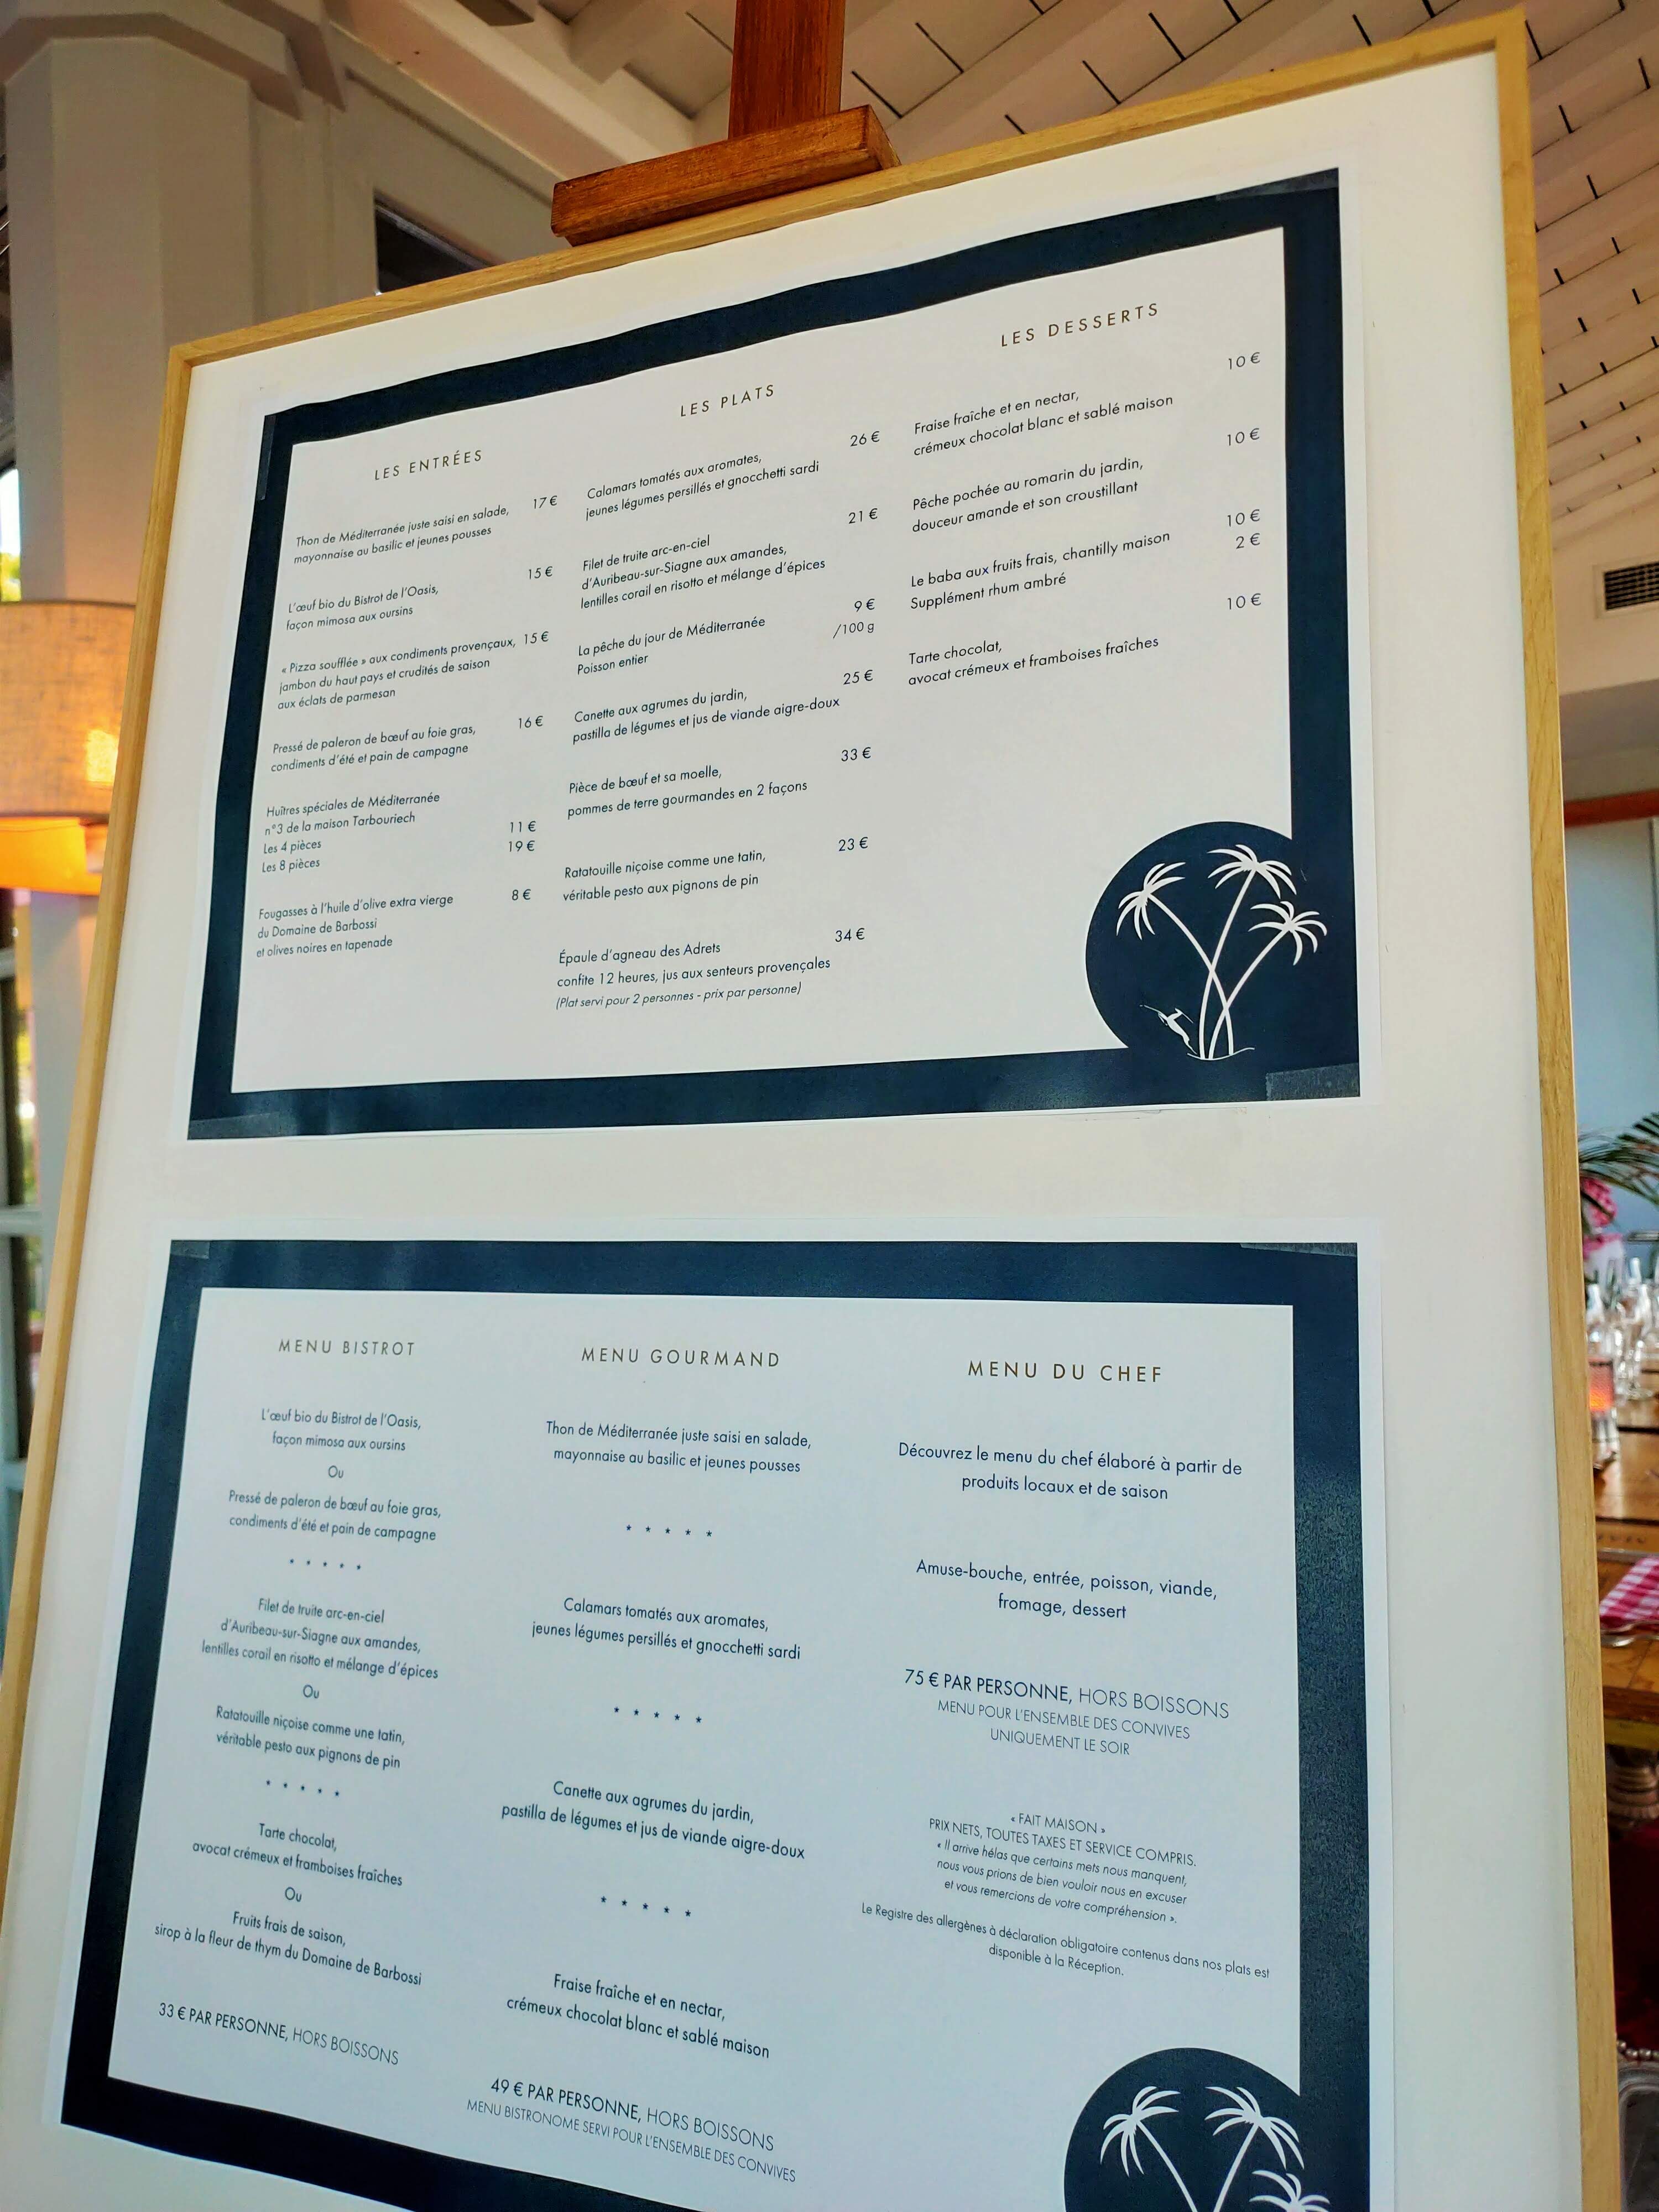 LES ENTRÉES
Thon de Méditerranée juste saisi en salade, 17 €
mayonnaise au basilic et jeunes pousses
L'œuf bio du Bistrot de l'Oasis, 15 €
façon mimosa aux oursins
« Pizza soufflée » aux condiments provençaux, 15 €
jambon du haut pays et crudités de saison
aux éclats de parmesan
Pressé de paleron de bœuf au foie gras, 16 €
condiments d'été et pain de campagne
Huîtres spéciales de Méditerranée
n°3 de la maison Tarbouriech
Les 4 pièces 11 €
Les 8 pièces 19 €
Fougasses à l'huile d'olive extra vierge 8 €
du Domaine de Barbossi
et olives noires en tapenade
LES PLATS
Calamars tomatés aux aromates, 26 €
jeunes légumes persillés et gnocchetti sardi
Filet de truite arc-en-ciel 21 €
d'Auribeau-sur-Siagne aux amandes,
lentilles corail en risotto et mélange d'épices
La pêche du jour de Méditerranée 9 €
Poisson entier /100 g
Canette aux agrumes du jardin, 25 €
pastilla de légumes et jus de viande aigre-doux
Pièce de bœuf et sa moelle, 33 €
pommes de terre gourmandes en 2 façons
Ratatouille niçoise comme une tatin, 23 €
véritable pesto aux pignons de pin
Épaule d'agneau des Adrets 34 €
confite 12 heures, jus aux senteurs provençales
(Plat servi pour 2 personnes - prix par personne)
LES DESSERTS
Fraise fraîche et en nectar, 10 €
crémeux chocolat blanc et sablé maison
Pêche pochée au romarin du jardin, 10 €
douceur amande et son croustillant
Le baba aux fruits frais, chantilly maison 10 €
Supplément rhum ambré 2 €
Tarte chocolat, 10 €
avocat crémeux et framboises fraîches
MENU BISTROT
L'œuf bio du Bistrot de l'Oasis,
façon mimosa aux oursins
Ou
Pressé de paleron de bœuf au foie gras,
condiments d'été et pain de campagne
* * * * *
Filet de truite arc-en-ciel
d'Auribeau-sur-Siagne aux amandes,
lentilles corail en risotto et mélange d'épices
Ou
Ratatouille niçoise comme une tatin,
véritable pesto aux pignons de pin
* * * * *
Tarte chocolat,
avocat crémeux et framboises fraîches
Ou
Fruits frais de saison,
sirop à la fleur de thym du Domaine de Barbossi
33 € PAR PERSONNE, HORS BOISSONS
MENU GOURMAND
Thon de Méditerranée juste saisi en salade,
mayonnaise au basilic et jeunes pousses
* * * * *
Calamars tomatés aux aromates,
jeunes légumes persillés et gnocchetti sardi
* * * * *
Canette aux agrumes du jardin,
pastilla de légumes et jus de viande aigre-doux
* * * * *
Fraise fraîche et en nectar,
crémeux chocolat blanc et sablé maison
49 € PAR PERSONNE, HORS BOISSONS
MENU BISTRONOME SERVI POUR L'ENSEMBLE DES CONVIVES
MENU DU CHEF
Découvrez le menu du chef élaboré à partir de
produits locaux et de saison
Amuse-bouche, entrée, poisson, viande,
fromage, dessert
75 € PAR PERSONNE, HORS BOISSONS
MENU POUR L'ENSEMBLE DES CONVIVES
UNIQUEMENT LE SOIR
« FAIT MAISON »
PRIX NETS, TOUTES TAXES ET SERVICE COMPRIS.
« Il arrive hélas que certains mets nous manquent,
nous vous prions de bien vouloir nous en excuser
et vous remercions de votre compréhension ».
Le Registre des allergènes à déclaration obligatoire contenus dans nos plats est
disponible à la Réception.